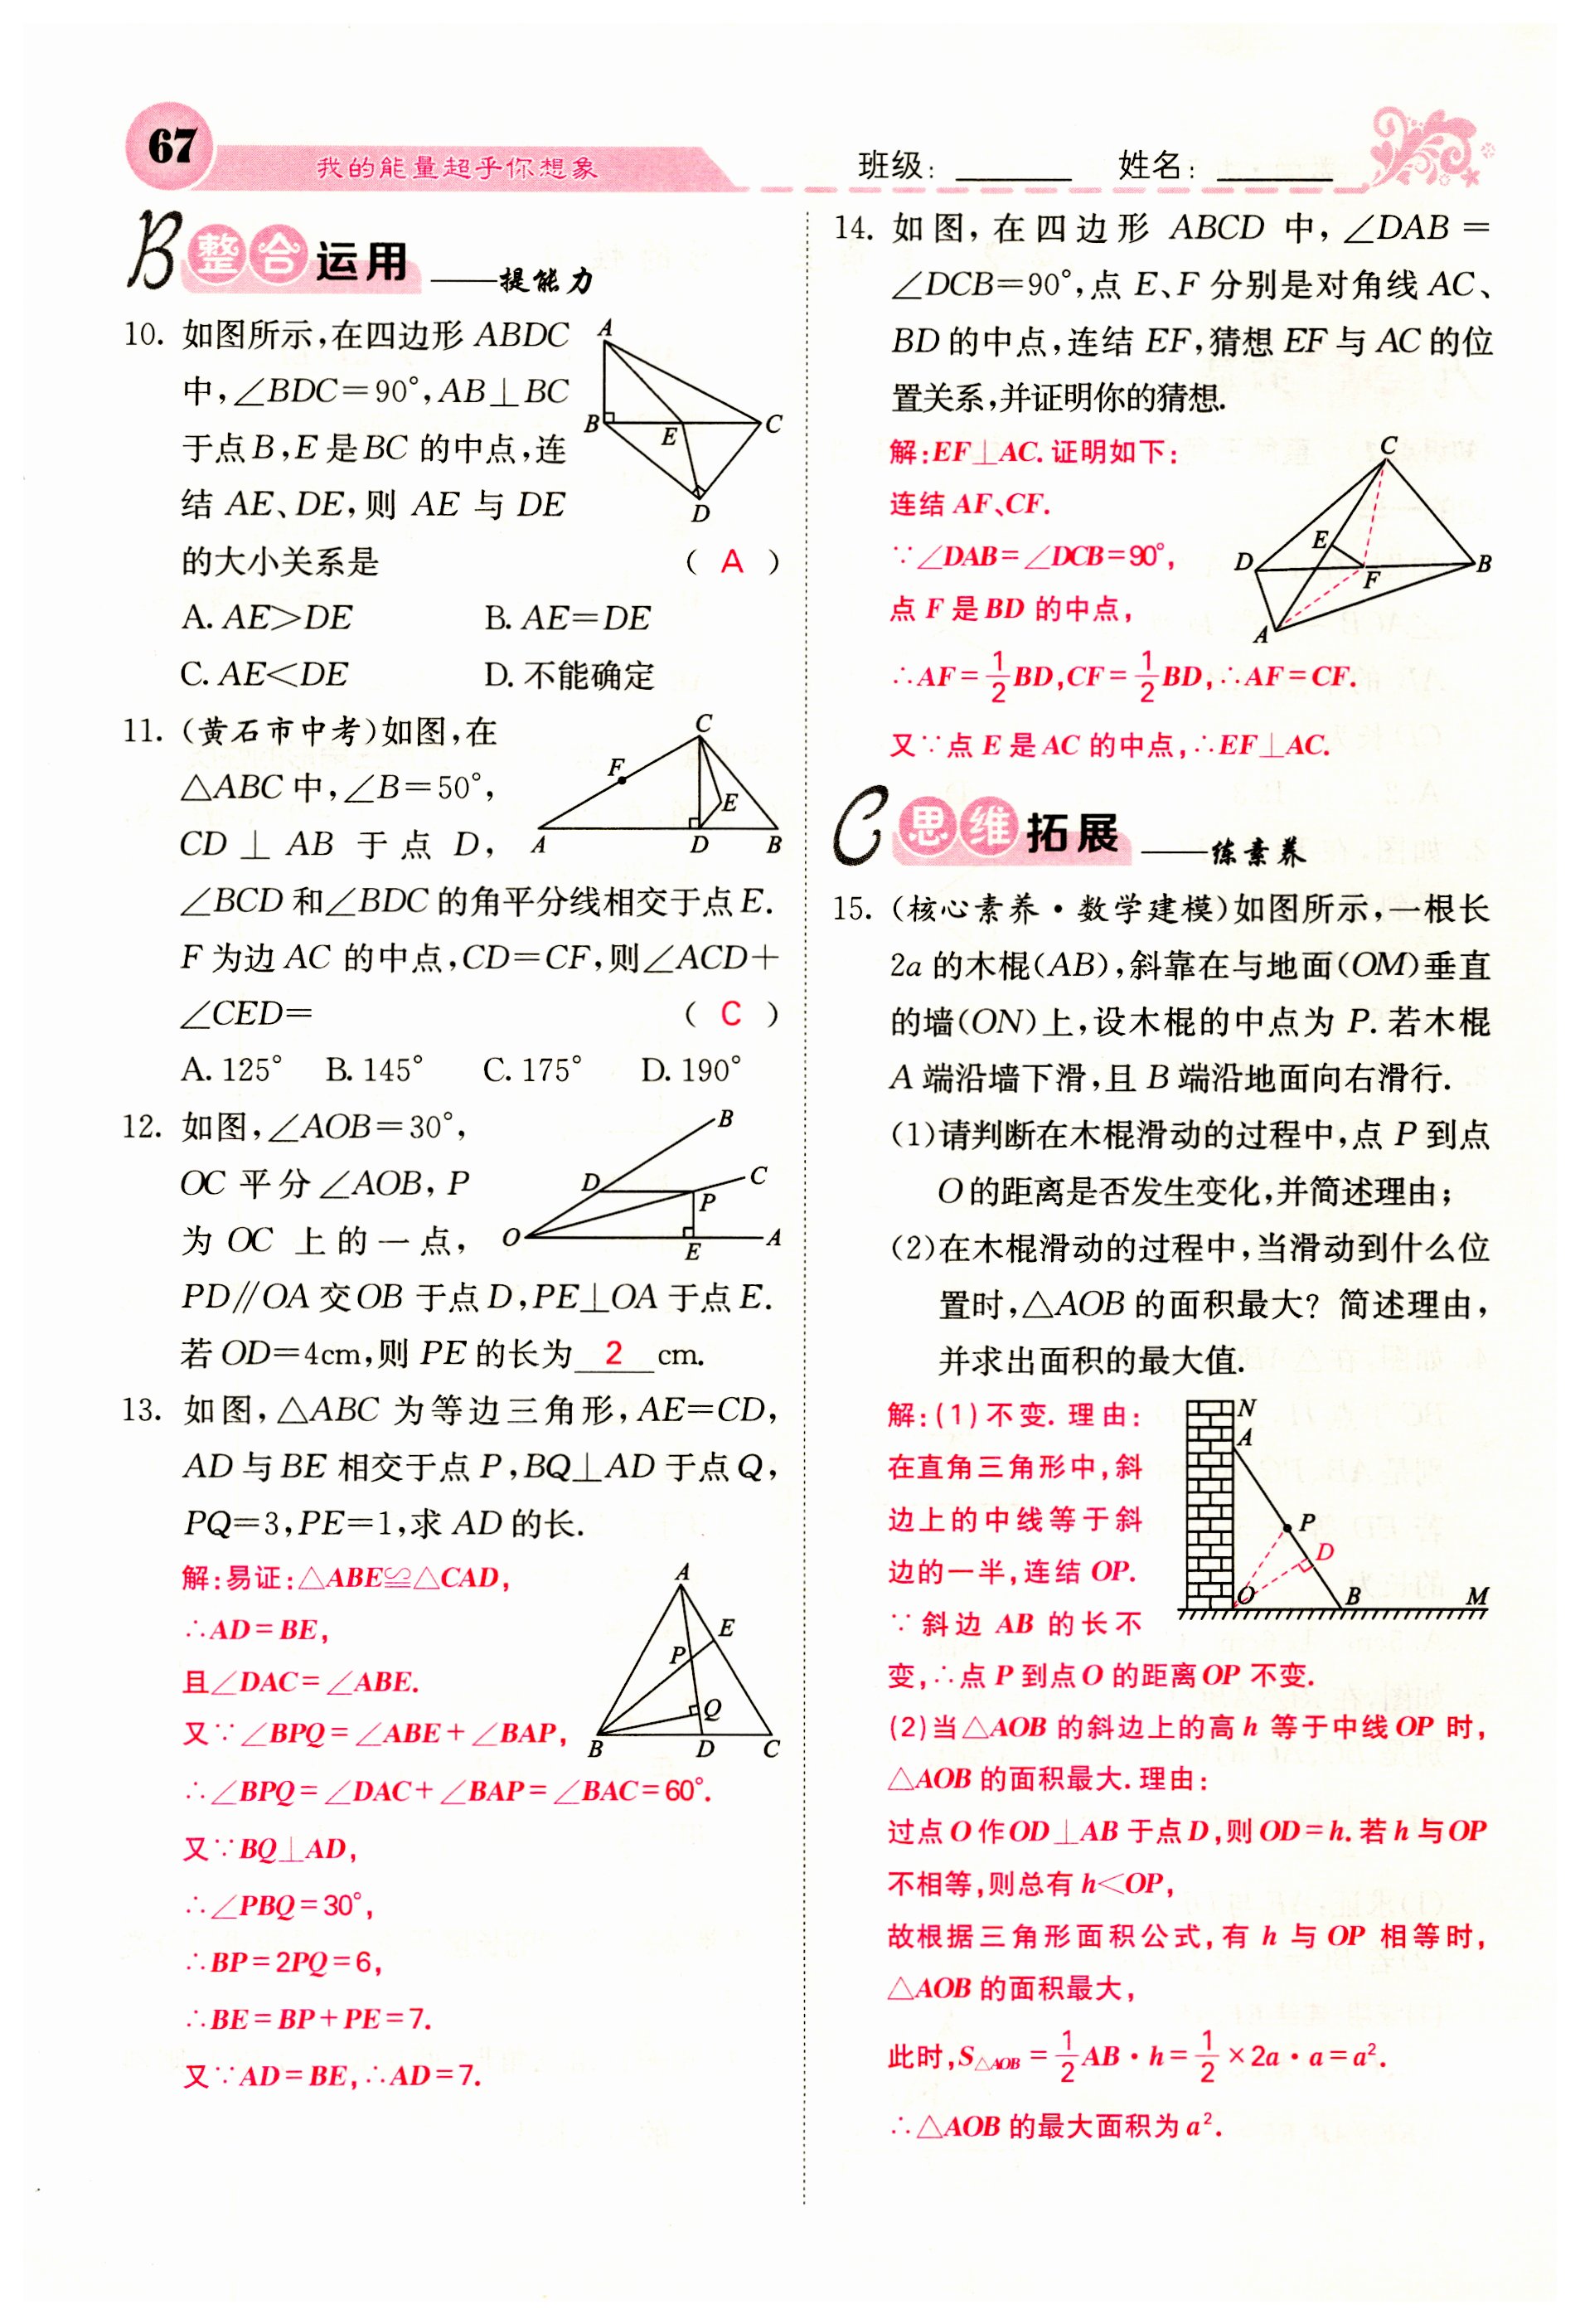 67
我的能量超乎你想象
班级：______ 姓名：______
B 整合运用 ——提能力
10. 如图所示,在四边形 ABDC
中,∠BDC=90°,AB⊥BC
于点B,E是BC 的中点,连
结 AE、DE,则 AE 与 DE
的大小关系是 ( A )
A. AE>DE B. AE=DE
C. AE<DE D. 不能确定
A
B
E
C
D
11. (黄石市中考)如图,在
△ABC 中,∠B=50°,
CD ⊥ AB 于点 D,
∠BCD 和∠BDC 的角平分线相交于点 E.
F 为边 AC 的中点,CD=CF,则∠ACD+
∠CED= ( C )
A. 125° B. 145° C. 175° D. 190°
C
F
E
A
D
B
12. 如图,∠AOB=30°,
OC 平分∠AOB, P
为 OC 上的一点,
PD∥OA 交OB 于点 D,PE⊥OA 于点 E.
若 OD=4cm,则 PE 的长为 2 cm.
B
D
C
P
O
E
A
13. 如图,△ABC 为等边三角形,AE=CD,
AD 与 BE 相交于点 P,BQ⊥AD 于点 Q,
PQ=3,PE=1,求 AD 的长.
解:易证:△ABE≌△CAD,
∴AD=BE,
且∠DAC=∠ABE.
又∵∠BPQ=∠ABE+∠BAP,
∴∠BPQ=∠DAC+∠BAP=∠BAC=60°.
又∵BQ⊥AD,
∴∠PBQ=30°,
∴BP=2PQ=6,
∴BE=BP+PE=7.
又∵AD=BE,∴AD=7.
A
E
P
Q
B
D
C
14. 如图,在四边形 ABCD 中,∠DAB=
∠DCB=90°,点 E、F 分别是对角线 AC、
BD 的中点,连结 EF,猜想 EF 与 AC 的位
置关系,并证明你的猜想.
解:EF⊥AC.证明如下:
连结 AF、CF.
∵∠DAB=∠DCB=90°,
点 F 是 BD 的中点,
∴AF=1/2BD,CF=1/2BD,∴AF=CF.
又∵点 E 是 AC 的中点,∴EF⊥AC.
C
E
D
F
B
A
C 思维拓展 ——练素养
15. (核心素养·数学建模)如图所示,一根长
2a 的木棍(AB),斜靠在与地面(OM)垂直
的墙(ON)上,设木棍的中点为 P. 若木棍
A 端沿墙下滑,且 B 端沿地面向右滑行.
(1)请判断在木棍滑动的过程中,点 P 到点
O的距离是否发生变化,并简述理由;
(2)在木棍滑动的过程中,当滑动到什么位
置时,△AOB 的面积最大？简述理由,
并求出面积的最大值.
解:(1)不变.理由:
在直角三角形中,斜
边上的中线等于斜
边的一半,连结 OP.
∵斜边 AB 的长不
变,∴点 P 到点O 的距离OP 不变.
(2)当△AOB 的斜边上的高 h 等于中线 OP 时,
△AOB 的面积最大.理由:
过点 O 作OD⊥AB 于点D,则OD=h.若 h 与OP
不相等,则总有 h<OP,
故根据三角形面积公式,有 h 与 OP 相等时,
△AOB 的面积最大,
此时,S△AOB=1/2AB·h=1/2×2a·a=a².
∴△AOB 的最大面积为 a².
N
A
P
D
O
B
M